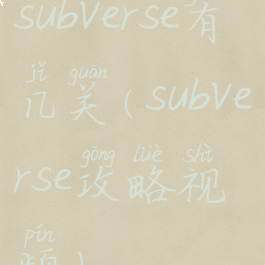 subverse有
jǐ guān
几关（subve
gōng lüè shì
rse攻略视
pín
频）